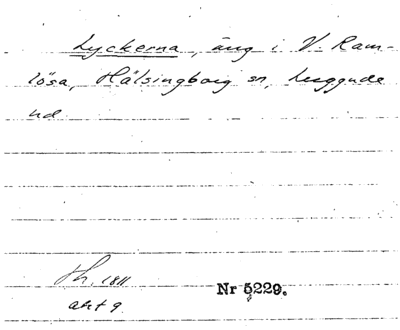 Lyckerna, äng i V. Ram-
lösa, Hälsingborg sn, Luggude
hd
Sh. 1811
akt 9.
Nr 5229.